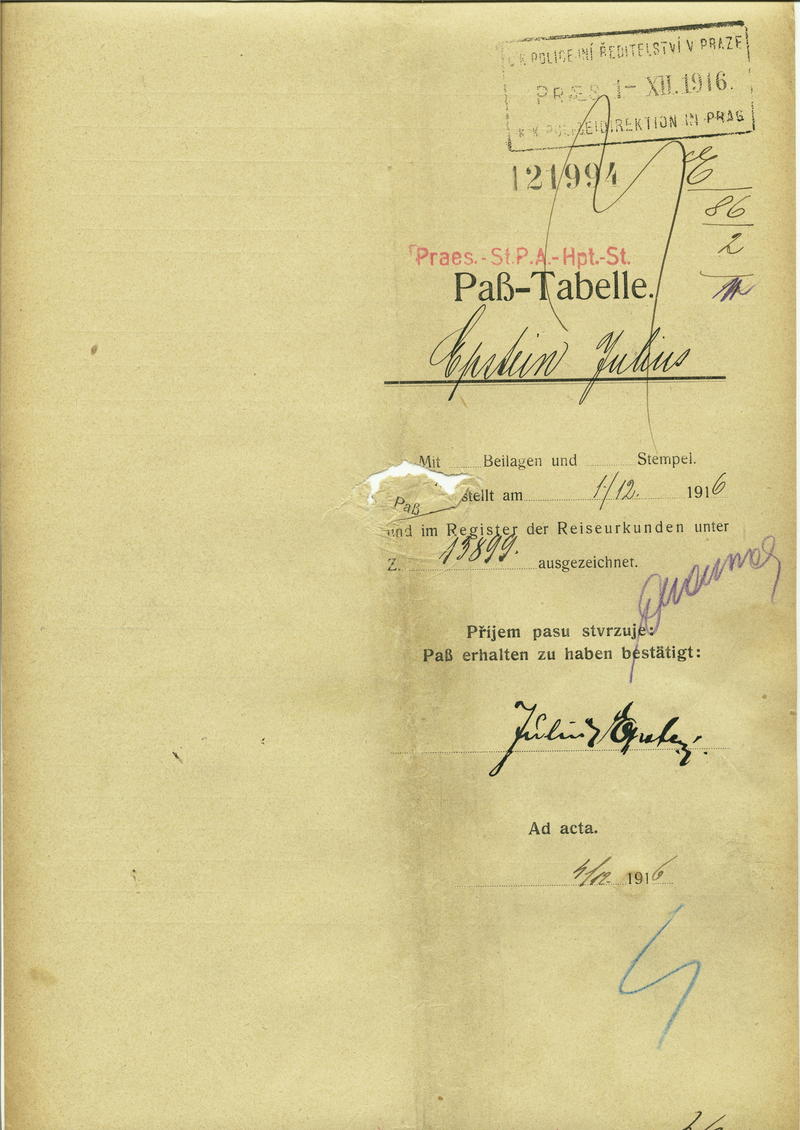 K.K. POLICEJNÍ ŘEDITELSTVÍ V PRAZE
PRÆS 1- XII. 1916.
K.K. POLIZEIDIREKTION IN PRAG
121994
E
86
2
Praes.-St.P.A.-Hpt.-St.
Paß-Tabelle.
Epstein Julius
Mit Beilagen und Stempel.
Paß stellt am 1/12. 1916
und im Register der Reiseurkunden unter
Z. 13899. ausgezeichnet.
Příjem pasu stvrzuje:
Paß erhalten zu haben bestätigt:
Julius Epstein
Ad acta.
1916